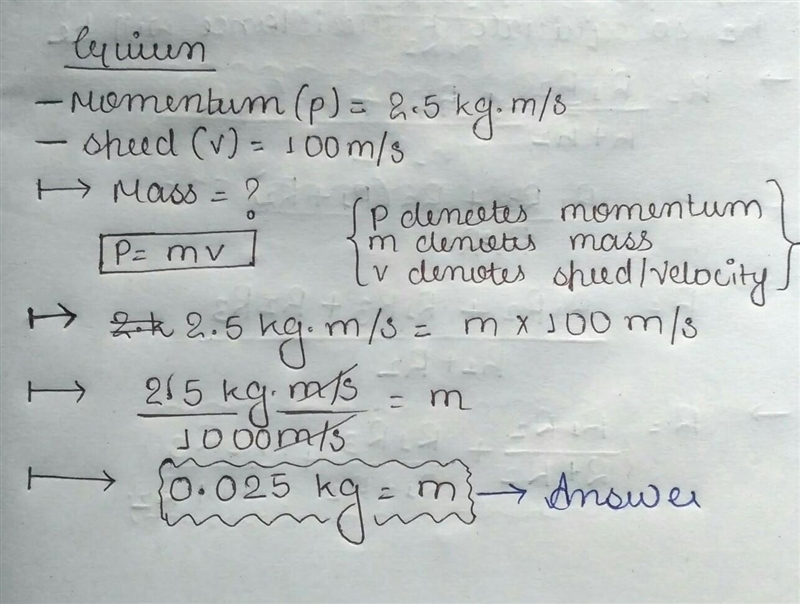 Given
- Momentum (p) = 2.5 kg.m/s
- Speed (v) = 100 m/s
↦ Mass = ?
P = mv
{ p denotes momentum
m denotes mass
v denotes speed/velocity }
↦ 2.k 2.5 kg.m/s = m × 100 m/s
↦ 25 kg. m/s / 1000 m/s = m
↦ 0.025 kg = m → Answer